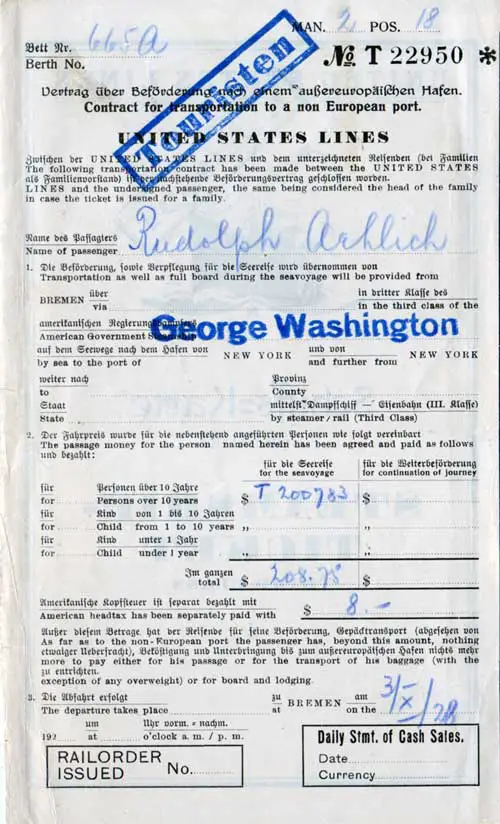 MAN. 2 POS. 18
Bett Nr. 665A
Berth No.
No T 22950 *
Touristen
Vertrag über Beförderung nach einem außereuropäischen Hafen.
Contract for transportation to a non European port.
UNITED STATES LINES
Zwischen der UNITED STATES LINES und dem unterzeichneten Reisenden (bei Familien
The following transportation contract has been made between the UNITED STATES
als Familienvorstand) ist der nachstehende Beförderungsvertrag geschlossen worden.
LINES and the undersigned passenger, the same being considered the head of the family
in case the ticket is issued for a family.
Name des Passagiers Rudolph
Name of passenger
1. Die Beförderung, sowie Verpflegung für die Seereise wird übernommen von
Transportation as well as full board during the seavoyage will be provided from
BREMEN über in dritter Klasse des
via in the third class of the
amerikanischen Regierungsdampfers
American Government Steamship
George Washington
auf dem Seewege nach dem Hafen von NEW YORK und von NEW YORK
by sea to the port of and further from
weiter nach Provinz
to County
Staat mittelst Dampfschiff — Eisenbahn (III. Klasse)
State by steamer/rail (Third Class)
2. Der Fahrpreis wurde für die nebenstehend angeführten Personen wie folgt vereinbart
The passage money for the person named herein has been agreed and paid as follows
und bezahlt:
für die Seereise für die Weiterbeförderung
for the seavoyage for continuation of journey
für Personen über 10 Jahre
for Persons over 10 years $ T 200783 $
für Kind von 1 bis 10 Jahren
for Child from 1 to 10 years „ „
für Kind unter 1 Jahr
for Child under 1 year „ „
Im ganzen
total $ 208.78 $
Amerikanische Kopfsteuer ist separat bezahlt mit
American headtax has been separately paid with $ 8.-
Außer diesem Betrage hat der Reisende für seine Beförderung, Gepäcktransport (abgesehen von
As far as to the non-European port the passenger has, beyond this amount, nothing
etwaiger Ueberfracht), Beköstigung und Unterbringung bis zum außereuropäischen Hafen nichts mehr
more to pay either for his passage or for the transport of his baggage (with the
zu entrichten.
exception of any overweight) or for board and lodging.
3. Die Abfahrt erfolgt zu BREMEN am 3/X/28
The departure takes place at on the
um Uhr vorm. = nachm.
192 at o'clock a. m. / p. m.
RAILORDER
ISSUED No.
Daily Stmt. of Cash Sales.
Date
Currency